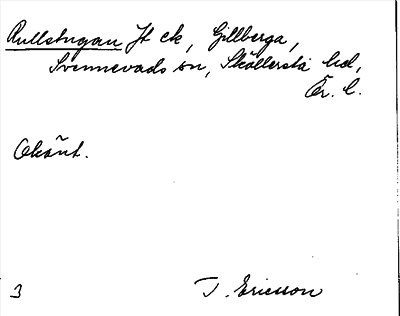 Rullstugan Jt ek, Gillberga,
Svennevads sn, Sköllersta hd,
Ör. l.
Okänt.
3 T. Ericsson